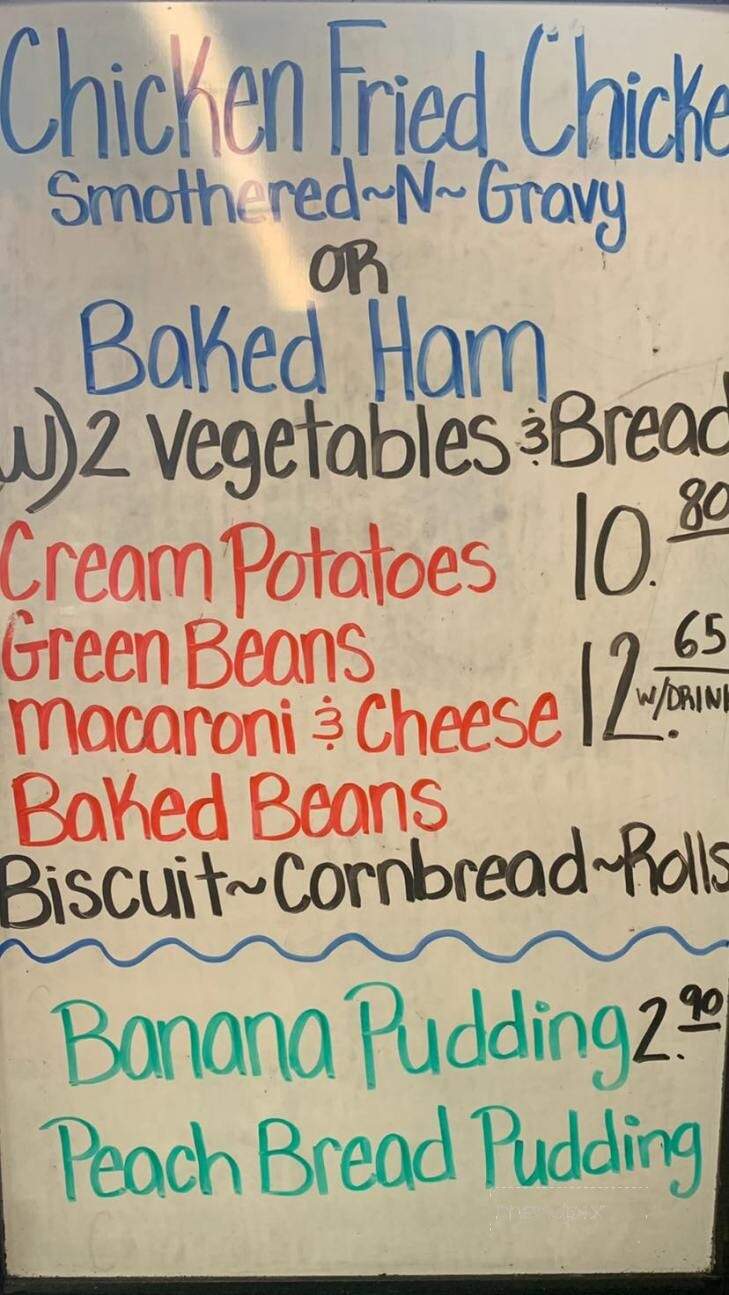 Chicken Fried Chicke
Smothered~N~Gravy
OR
Baked Ham
W)2 Vegetables & Bread
Cream Potatoes 10.80
Green Beans
12.65 W/DRIN
Macaroni & Cheese
Baked Beans
Biscuit~Cornbread~Rolls
Banana Pudding 2.90
Peach Bread Pudding